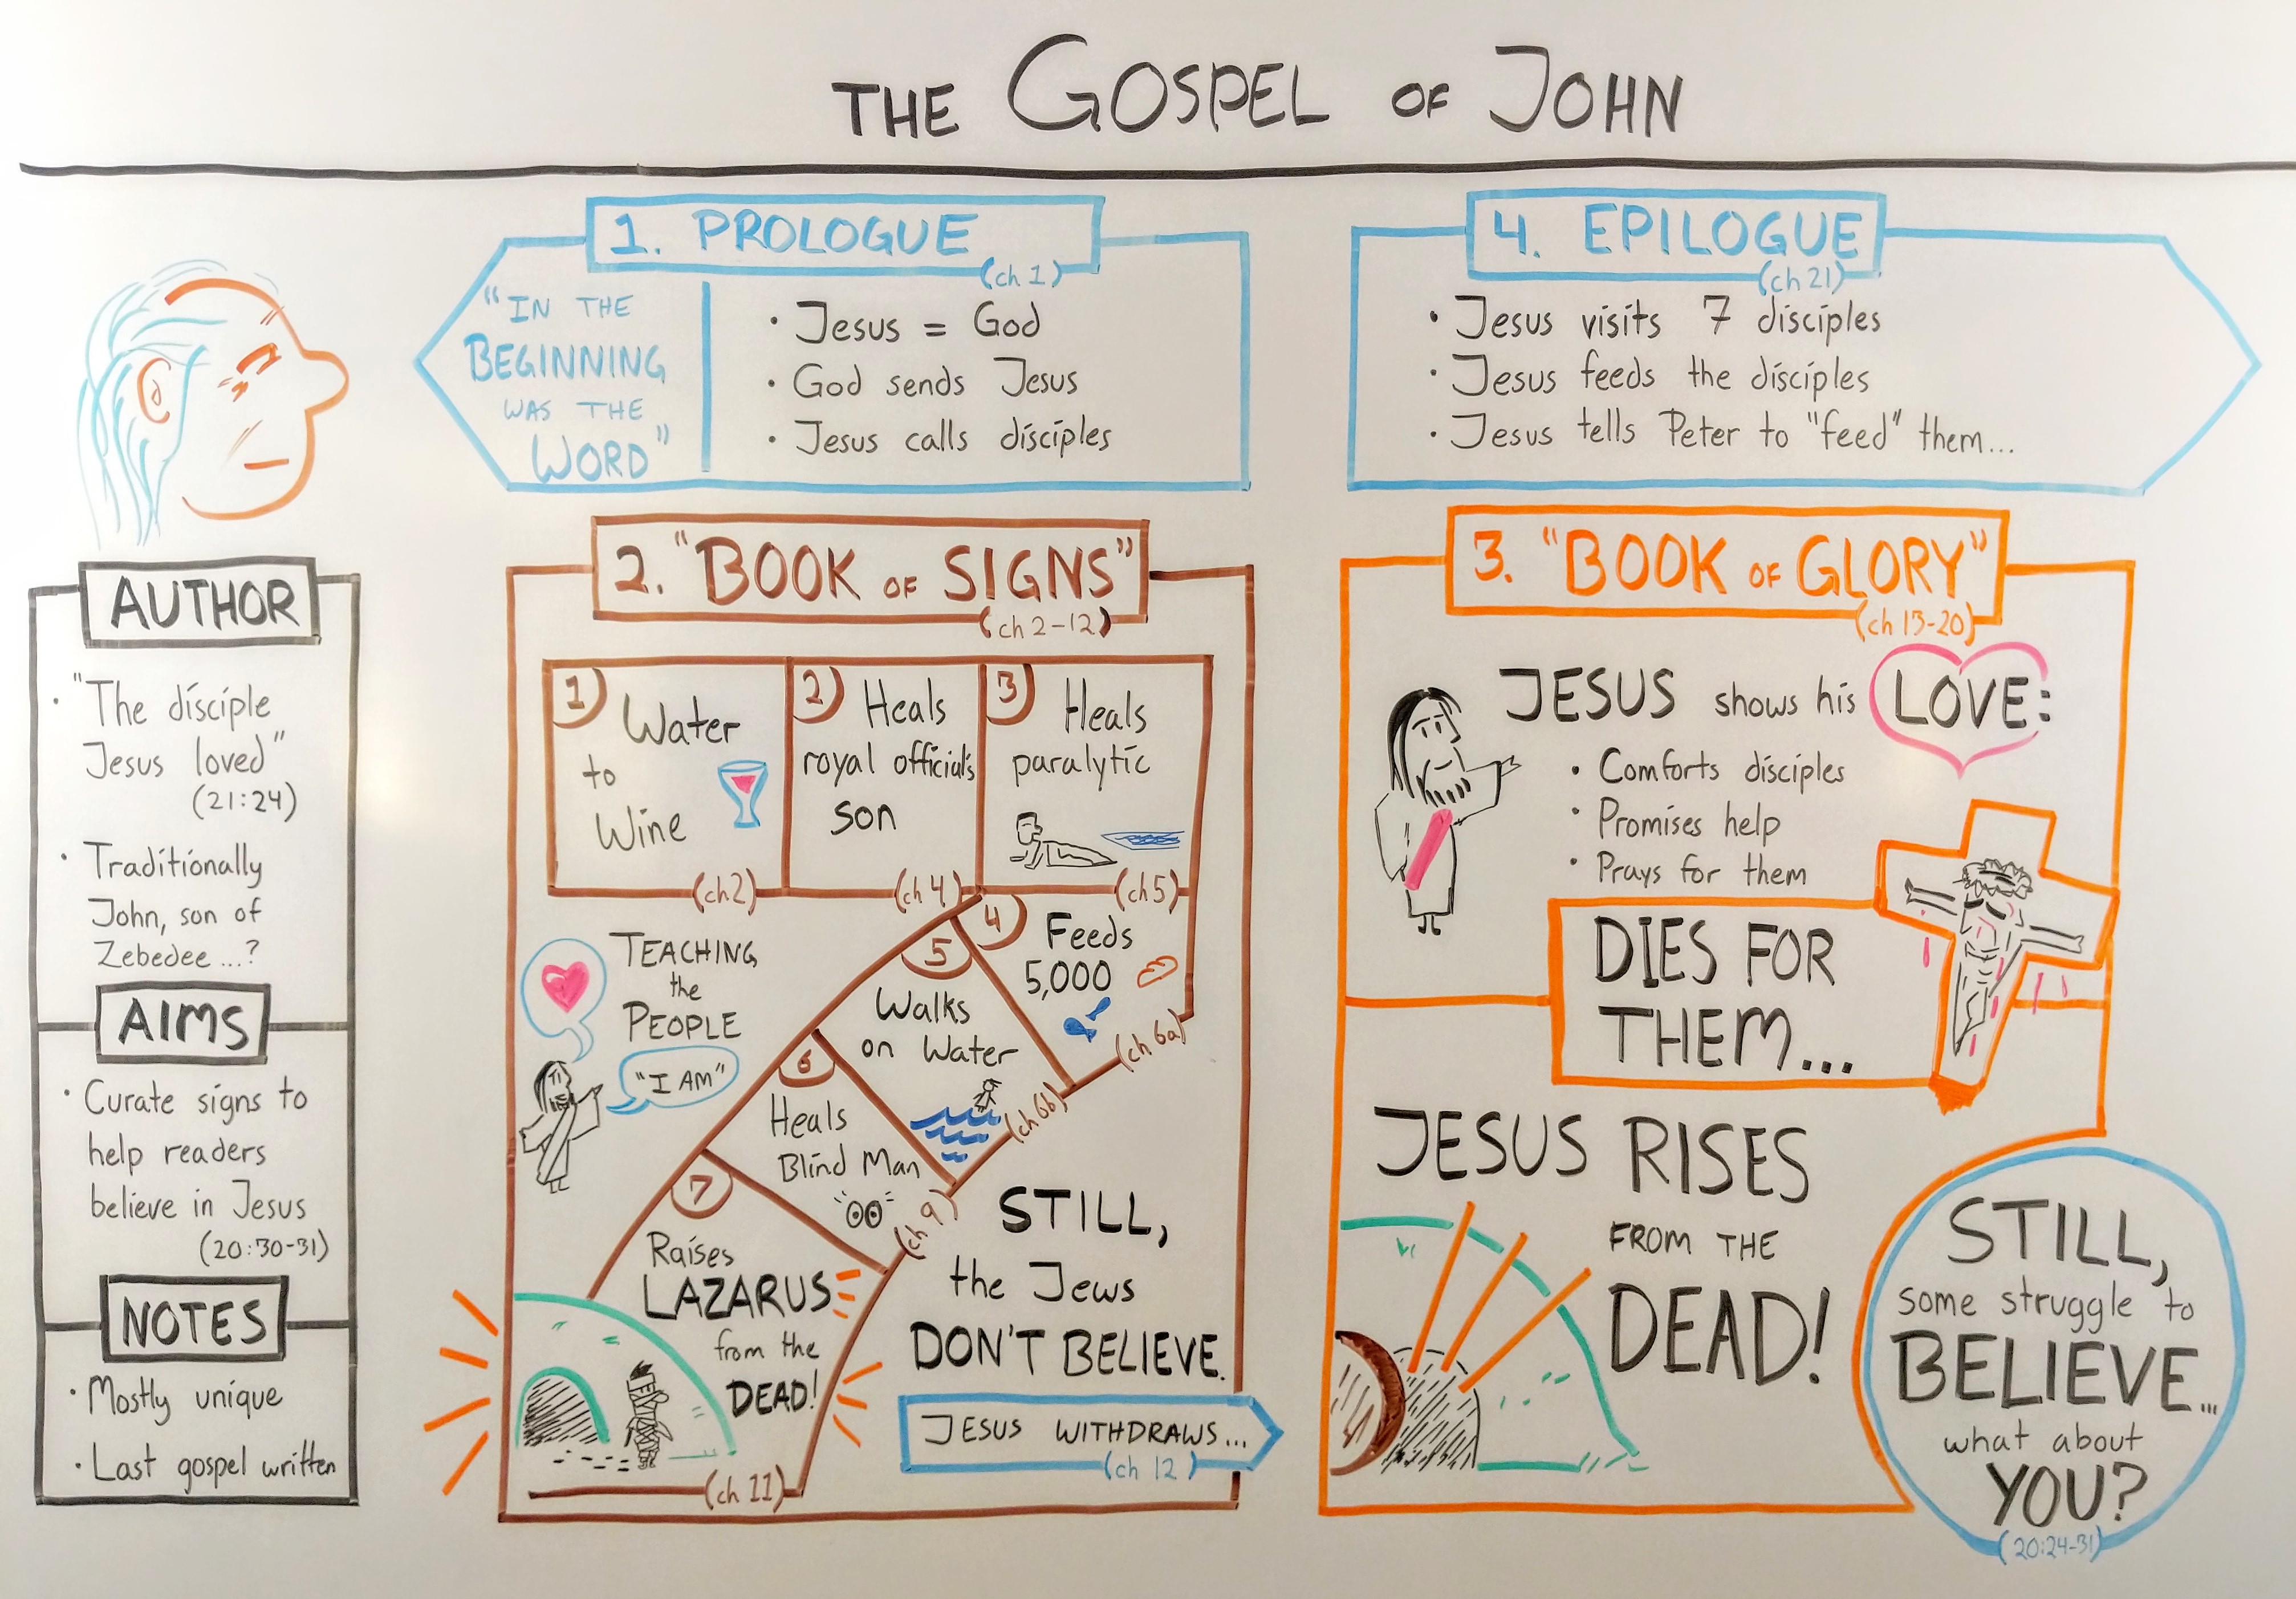 THE GOSPEL OF JOHN
AUTHOR
· "The disciple
Jesus loved"
(21:24)
· Traditionally
John, son of
Zebedee...?
AIMS
· Curate signs to
help readers
believe in Jesus
(20:30-31)
NOTES
· Mostly unique
· Last gospel written
1. PROLOGUE
(ch 1)
"IN THE
BEGINNING
WAS THE
WORD"
· Jesus = God
· God sends Jesus
· Jesus calls disciples
2. "BOOK OF SIGNS"
(ch 2-12)
1
Water
to
Wine
(ch2)
2
Heals
royal official's
son
(ch 4)
3
Heals
paralytic
(ch5)
4
Feeds
5,000
(ch 6a)
5
Walks
on Water
(ch 6b)
6
Heals
Blind Man
(ch 9)
7
Raises
LAZARUS
from the
DEAD!
(ch 11)
TEACHING
the
PEOPLE
"I AM"
STILL,
the Jews
DON'T BELIEVE.
JESUS WITHDRAWS...
(ch 12)
3. "BOOK OF GLORY"
(ch 13-20)
JESUS shows his LOVE:
· Comforts disciples
· Promises help
· Prays for them
DIES FOR
THEM...
JESUS RISES
FROM THE
DEAD!
STILL,
some struggle to
BELIEVE...
what about
YOU?
(20:24-31)
4. EPILOGUE
(ch 21)
· Jesus visits 7 disciples
· Jesus feeds the disciples
· Jesus tells Peter to "feed" them...